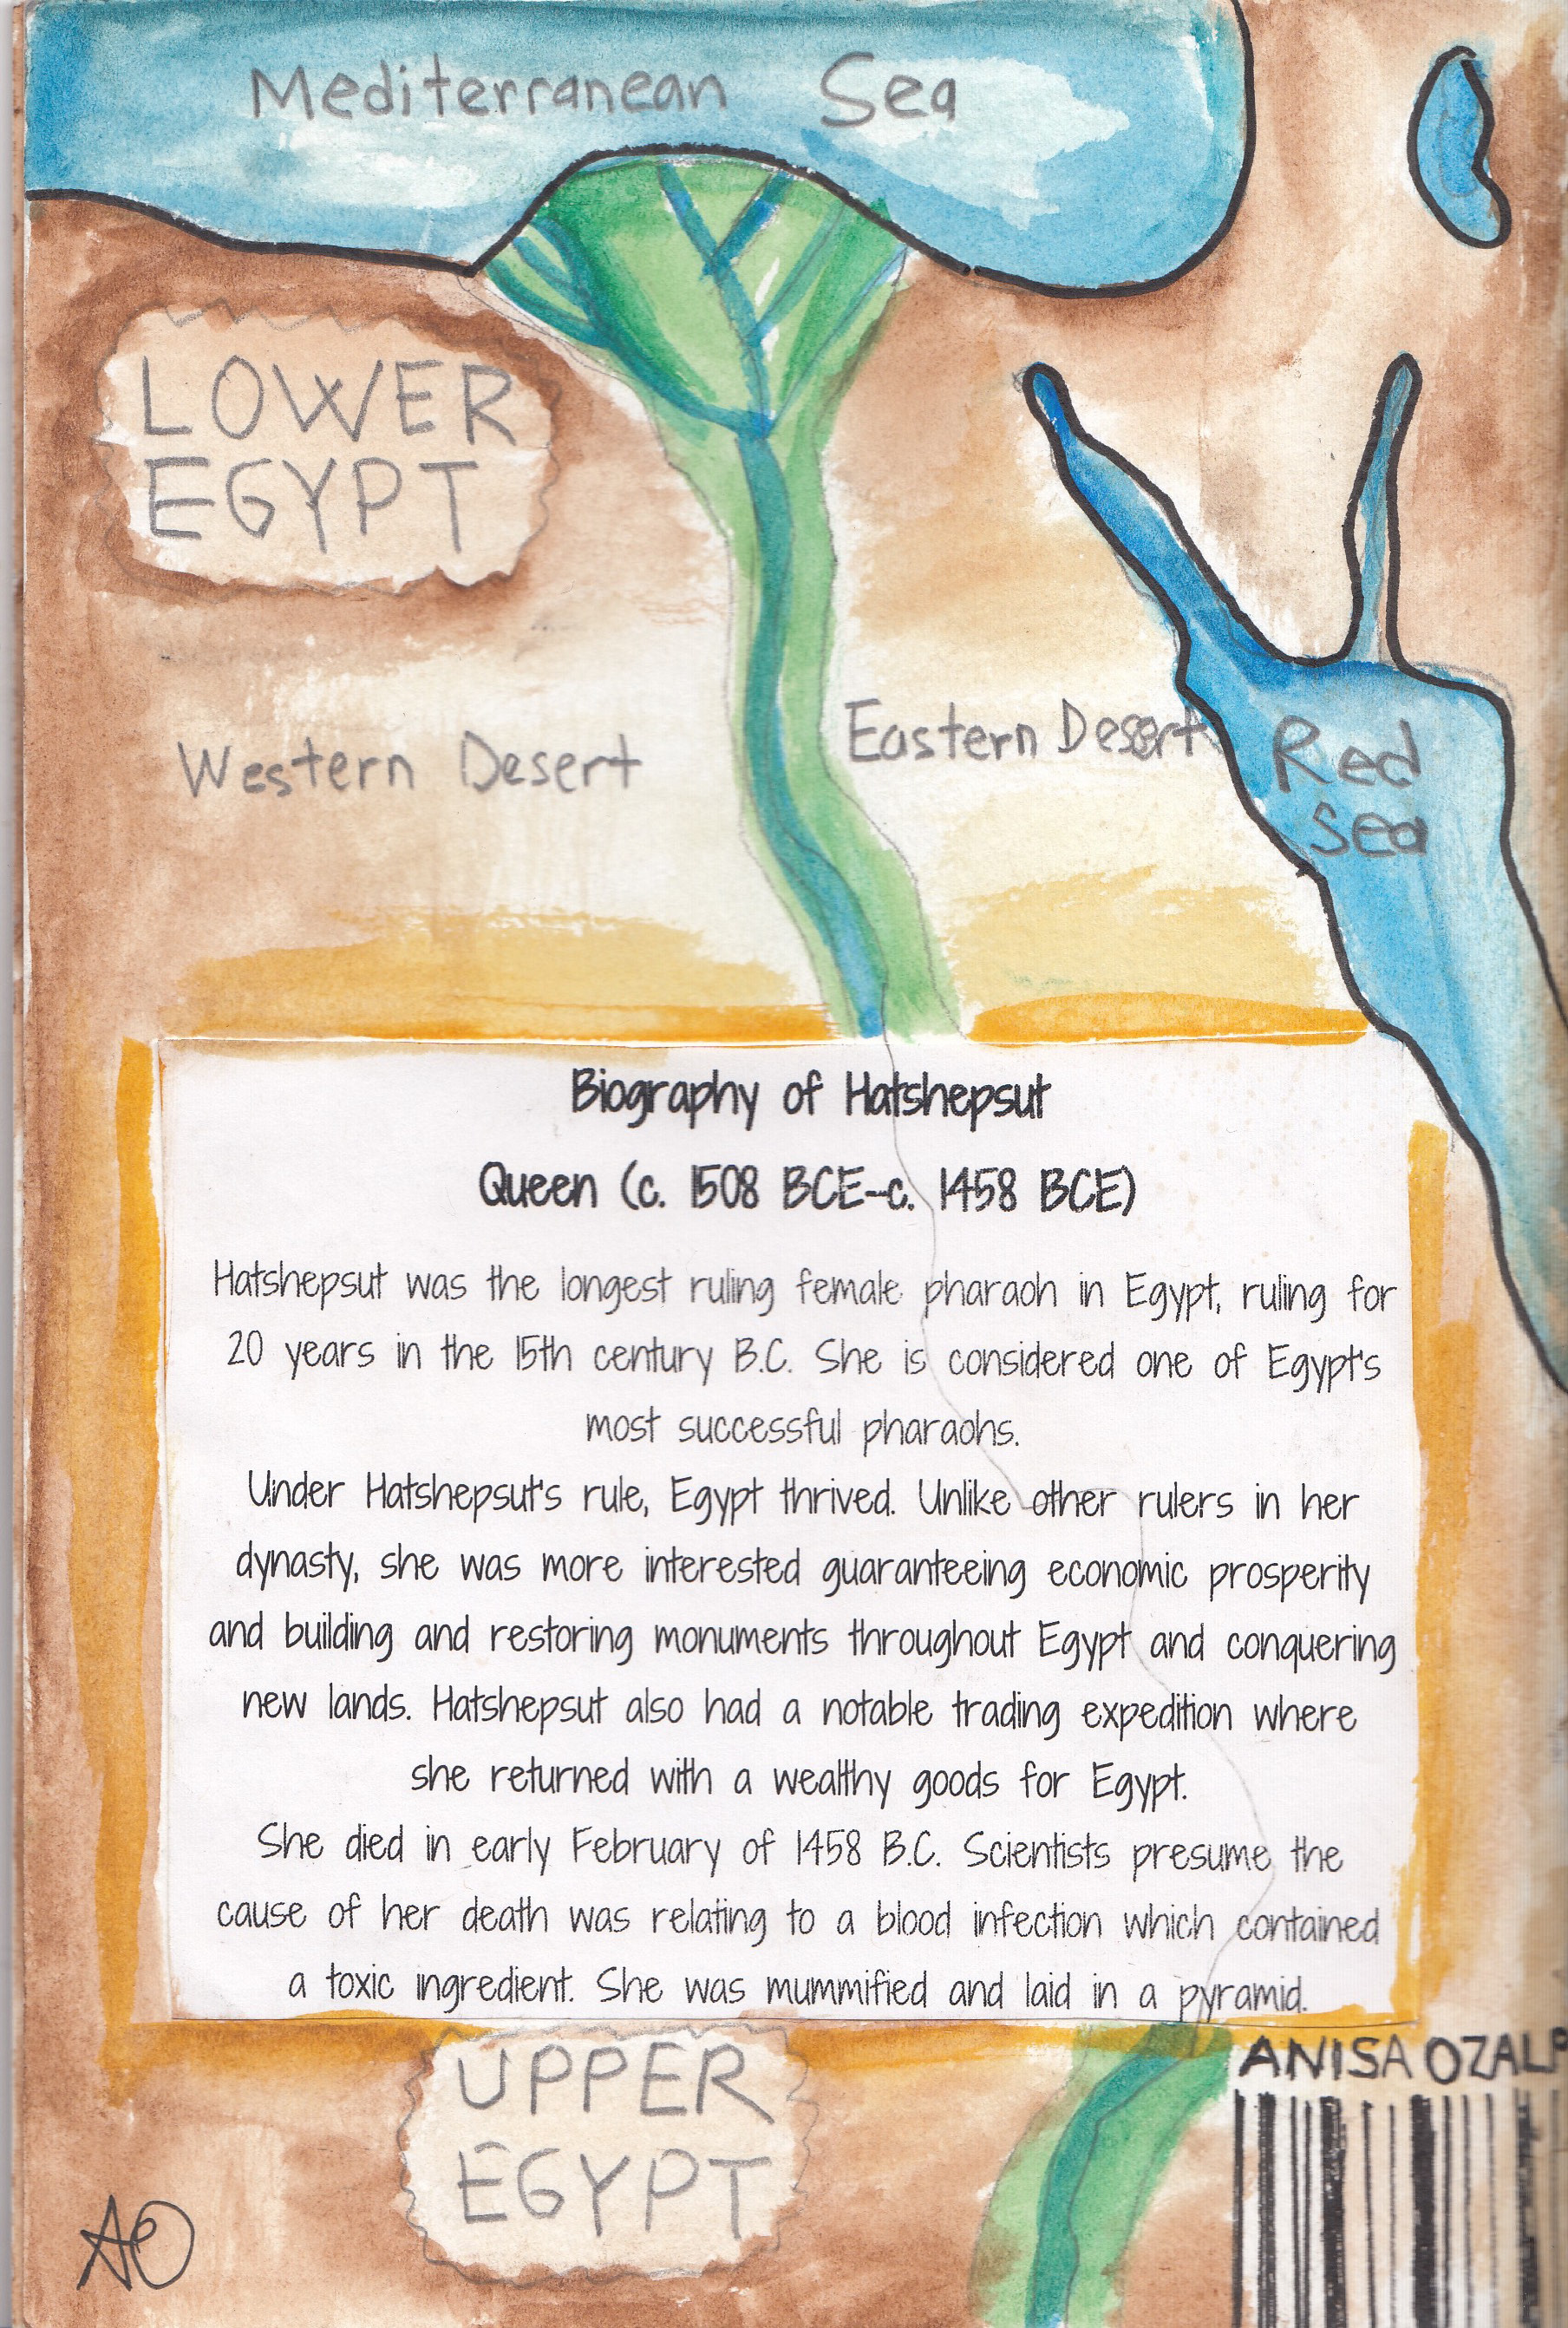 Mediterranean Sea
LOWER
EGYPT
Western Desert
Eastern Desert
Red
Sea
Biography of Hatshepsut
Queen (c. 1508 BCE-c. 1458 BCE)
Hatshepsut was the longest ruling female pharaoh in Egypt, ruling for
20 years in the 15th century B.C. She is considered one of Egypt's
most successful pharaohs.
Under Hatshepsut's rule, Egypt thrived. Unlike other rulers in her
dynasty, she was more interested guaranteeing economic prosperity
and building and restoring monuments throughout Egypt and conquering
new lands. Hatshepsut also had a notable trading expedition where
she returned with a wealthy goods for Egypt.
She died in early February of 1458 B.C. Scientists presume the
cause of her death was relating to a blood infection which contained
a toxic ingredient. She was mummified and laid in a pyramid.
UPPER
EGYPT
ANISA OZALP
AO